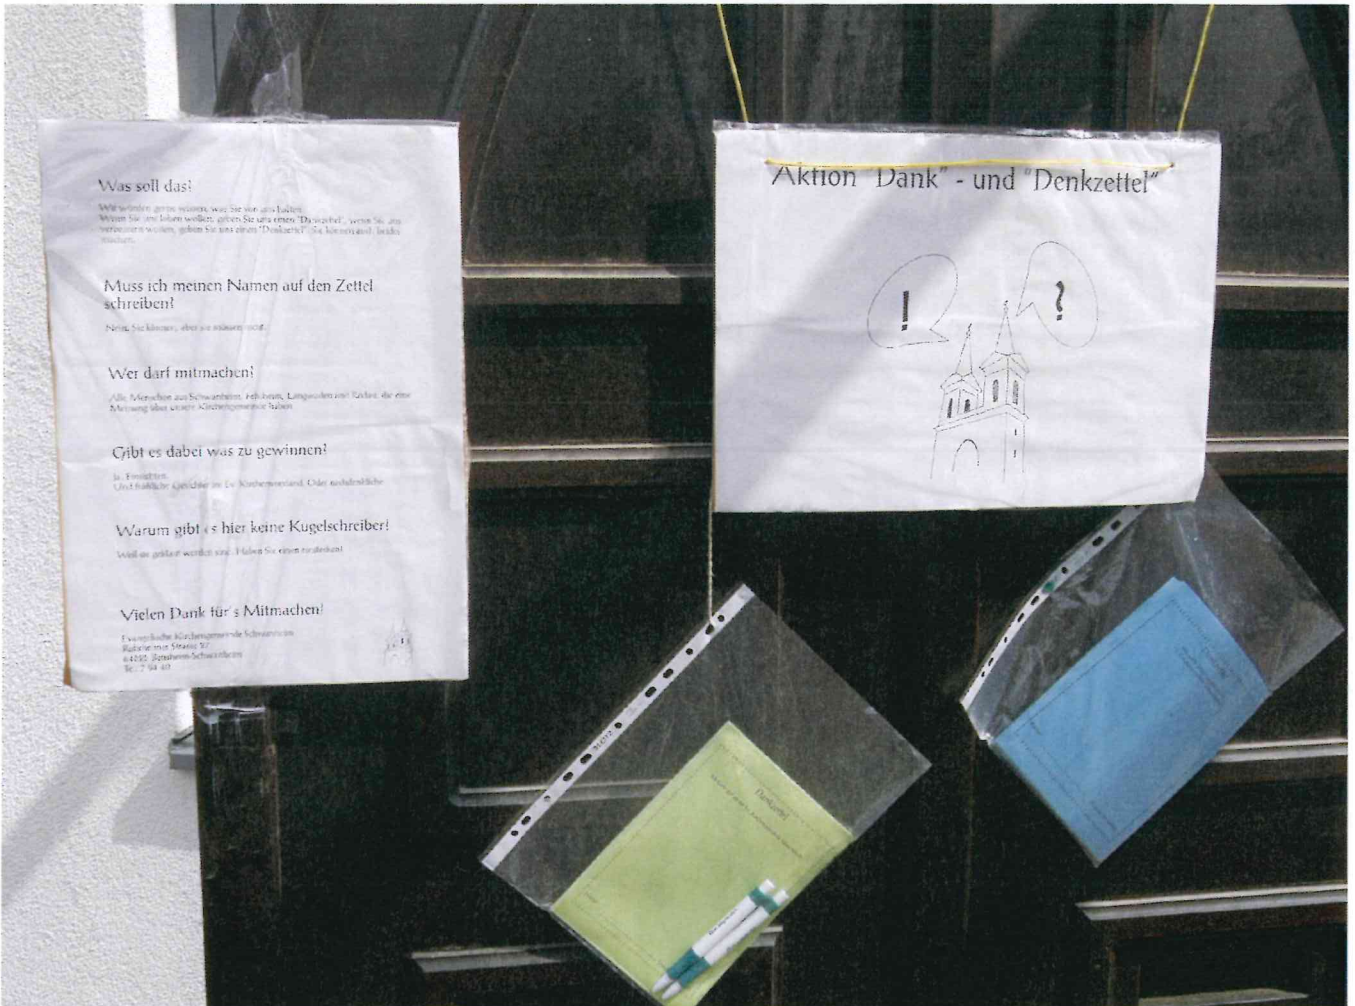 Was soll das?
Wir würden gerne wissen, was Sie von uns halten.
Wenn Sie uns loben wollen, geben Sie uns einen "Dankzettel", wenn Sie uns
verbessern wollen, geben Sie uns einen "Denkzettel". Sie können auch beides
machen.
Muss ich meinen Namen auf den Zettel
schreiben?
Nein. Sie können, aber sie müssen nicht.
Wer darf mitmachen?
Alle Menschen aus Schwanheim, Fehlheim, Langwaden und Rodau, die eine
Meinung über unsere Kirchengemeinde haben.
Gibt es dabei was zu gewinnen?
Ja, Einsichten.
Und fröhliche Gesichter im Ev. Kirchenvorstand. Oder nachdenkliche.
Warum gibt es hier keine Kugelschreiber?
Weil sie geklaut worden sind. Haben Sie einen
Vielen Dank für's Mitmachen!
Evangelische Kirchengemeinde Schwanheim
Straße
64625 Bensheim-Schwanheim
Tel.
Aktion "Dank" - und "Denkzettel"
!
?
Dankzettel